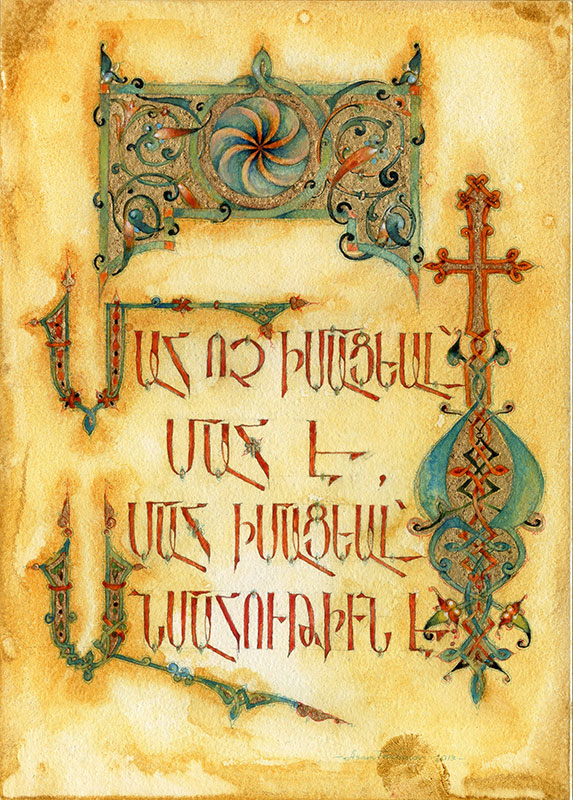 ՄԱՀ ՈՉ ԻՄԱՑԵԱԼ՝
ՄԱՀ Է,
ՄԱՀ ԻՄԱՑԵԱԼ՝
ԱՆՄԱՀՈՒԹԻՒՆ Է
2013